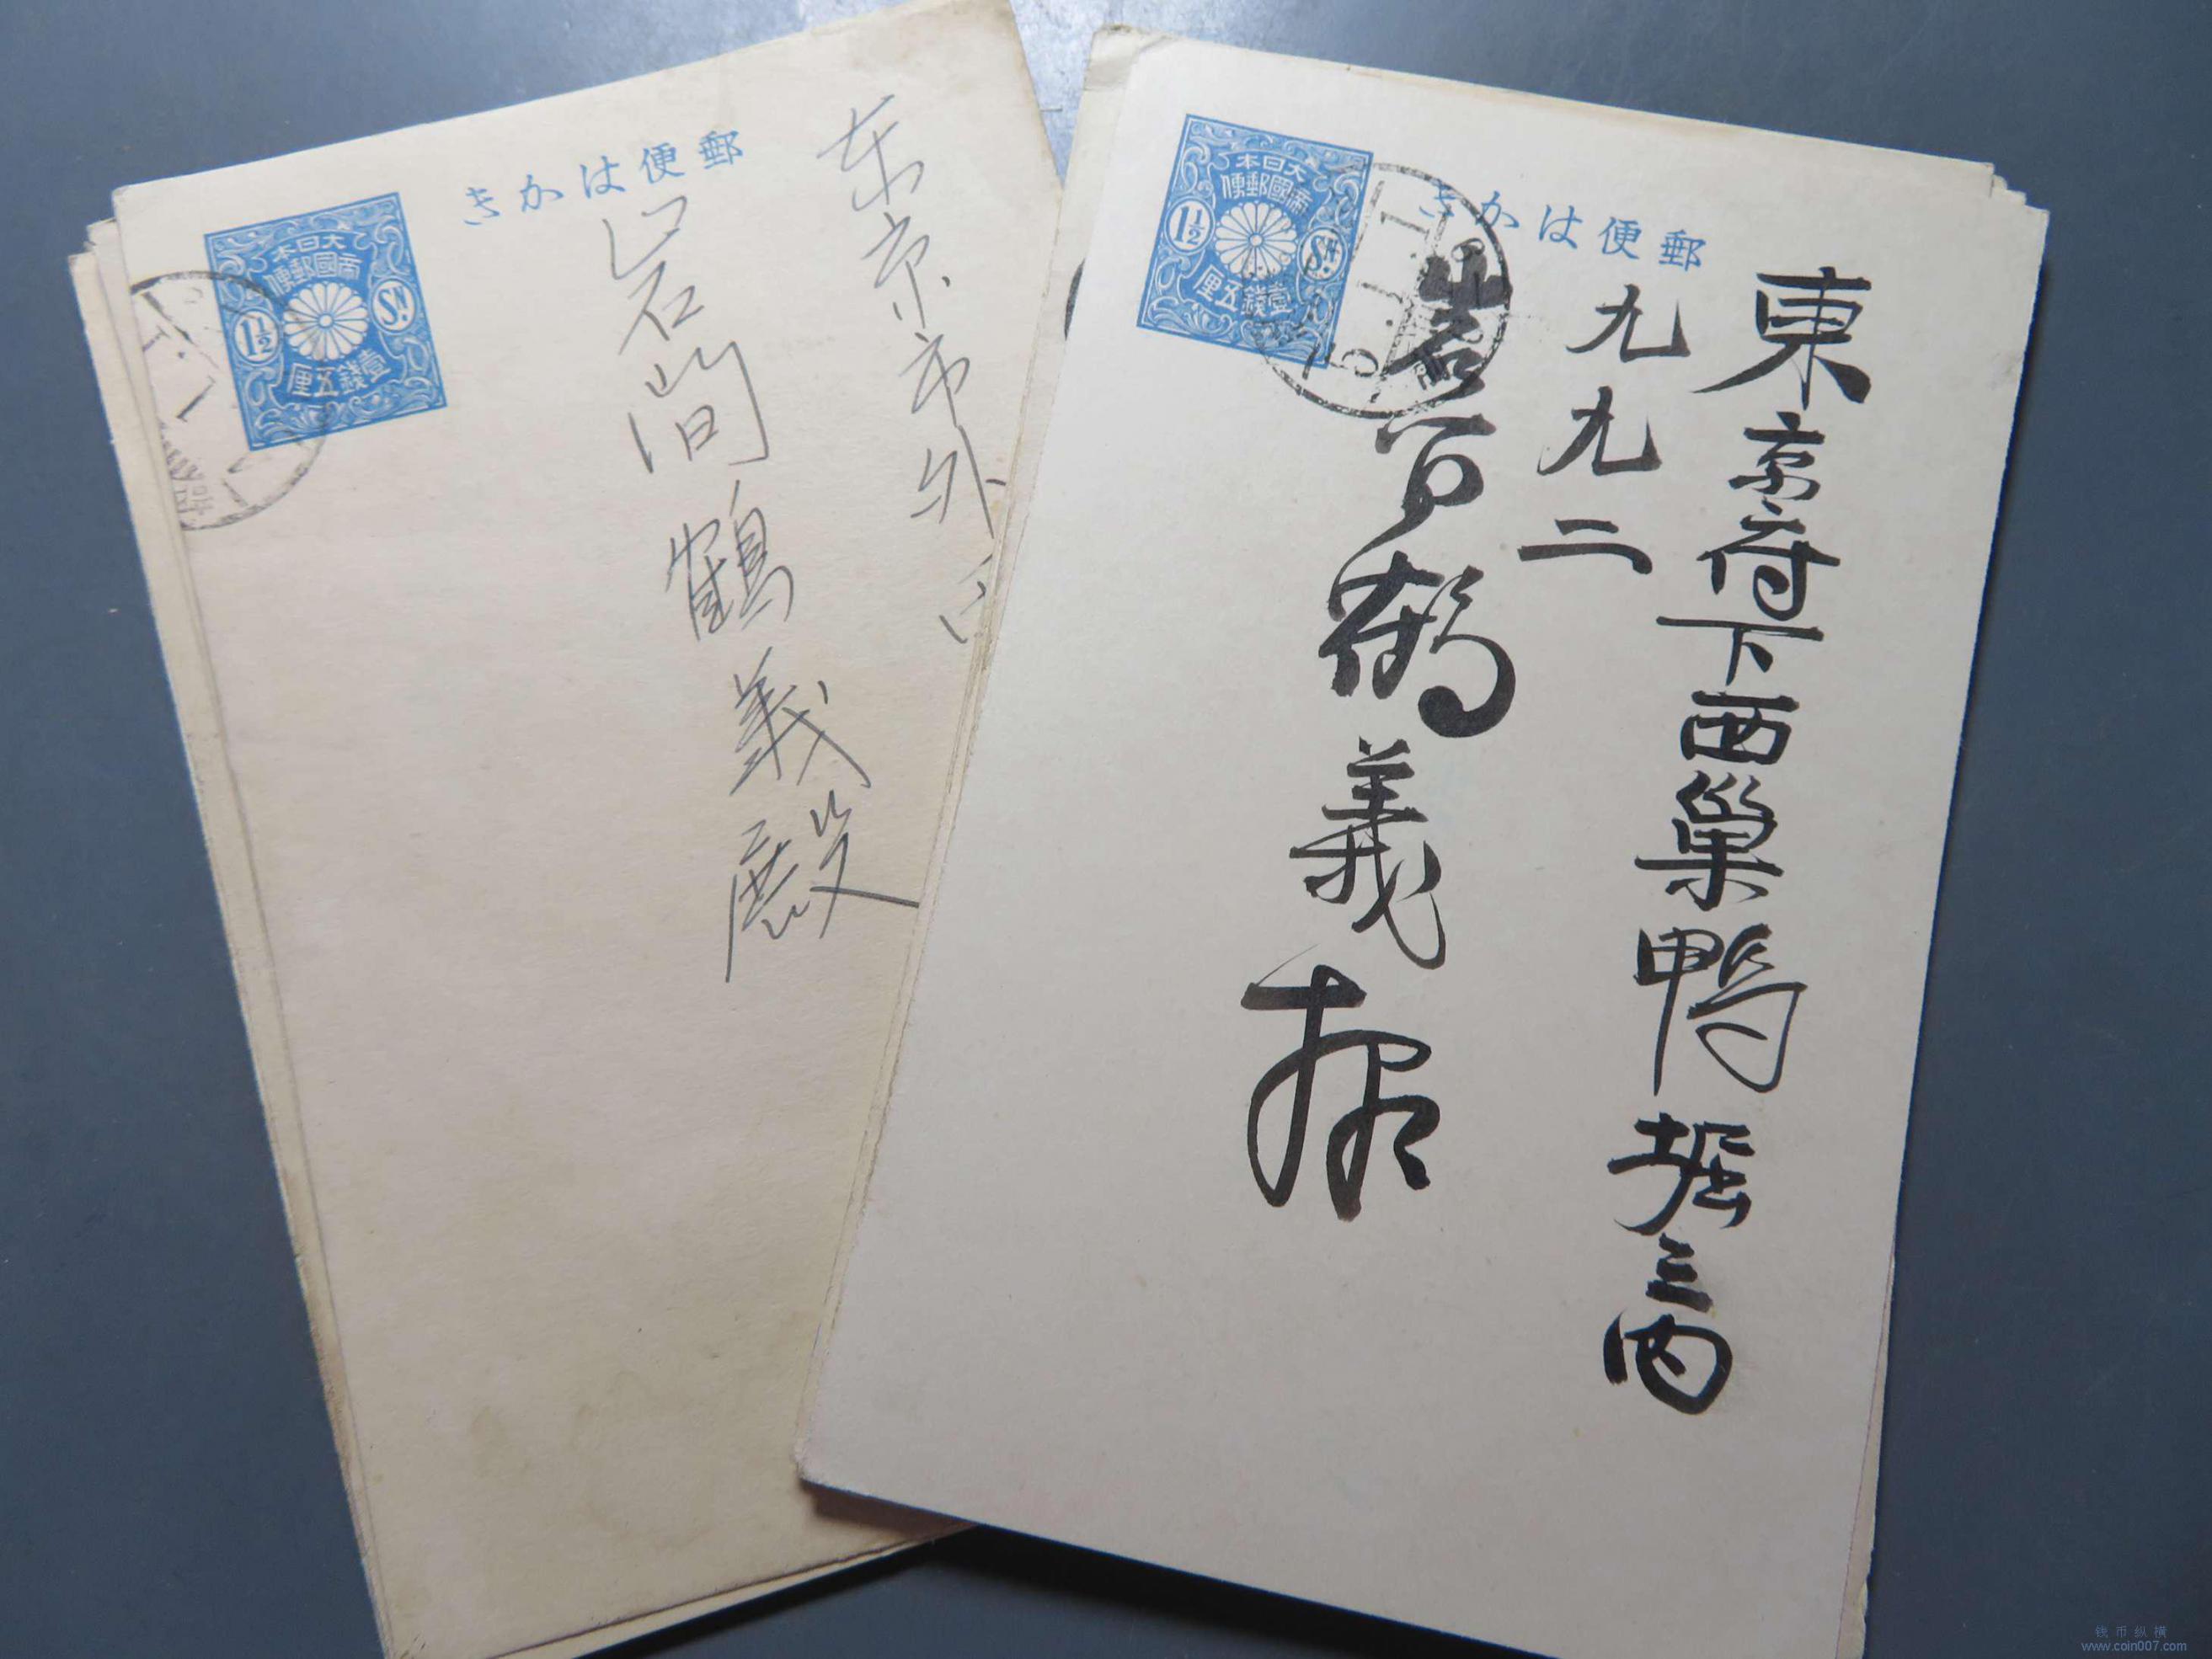 きかは便郵
大日本
帝國郵便
1½
Sɴ.
壹錢五厘
东京市外
岩间鶴義殿
きかは便郵
大日本
帝國郵便
1½
Sɴ.
壹錢五厘
東京府下西巢鴨堀之内
九九二
岩间鶴義様
钱币纵横
www.coin007.com